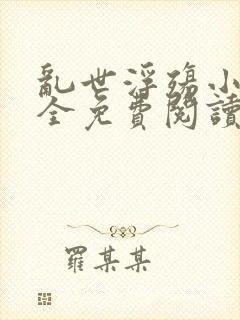 亂世浮殤小
全免費閱讀
羅某某